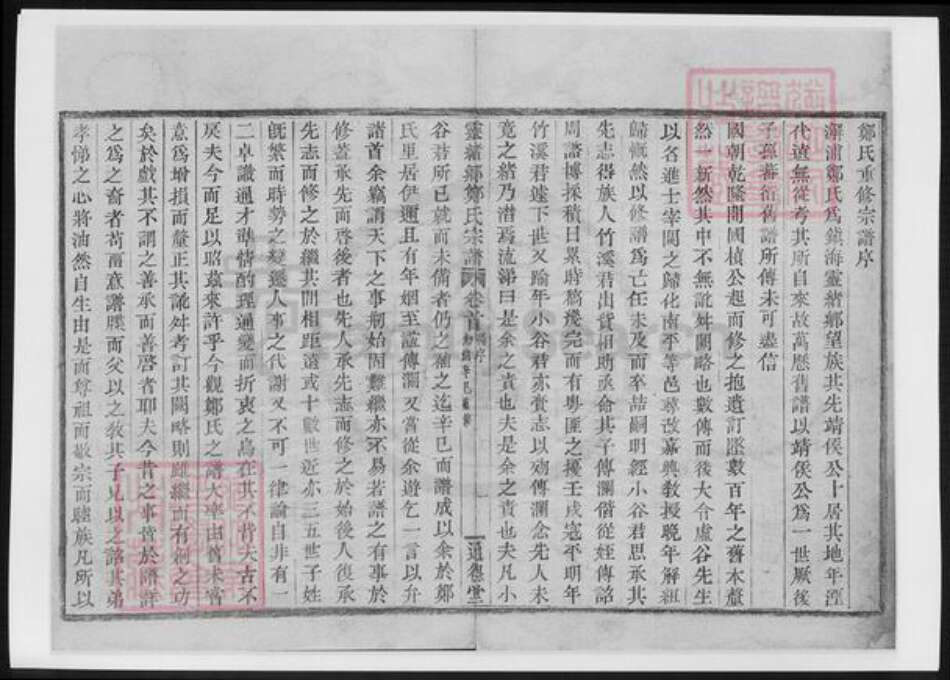 鄭氏重修宗譜序
澥浦鄭氏為鎮海靈緒鄉望族其先靖侯公卜居其地年湮
代遠無從考其所自來故萬厯舊譜以靖侯公為一世厥後
子孫蕃衍舊譜所傳未可盡信
國朝乾隆間國楨公起而修之抱遺訂墜數百年之舊本釐
然一新然其中不無訛舛闕略也數傳而後大令虛谷先生
以名進士宰閩之歸化南平等邑尋改嘉興教授晚年解組
歸慨然以修譜為己任未及而卒喆嗣明經小谷君思承其
先志得族人竹溪君出貲相助亟命其子傳瀾偕從姪傳詔
周諮博採積日累時稿幾完而有粵匪之擾壬戌寇平明年
竹溪君遽下世又踰年小谷君亦賫志以歿傳瀾念先人未
竟之緒乃潸焉流涕曰是余之責也夫是余之責也夫凡小
靈緒鄉鄭氏宗譜 卷首 譜序 通德堂
谷君所已就而未備者仍之補之迄辛巳而譜成以余於鄭
氏里居伊邇且有年姻至誼傳瀾又嘗從余遊乞一言以弁
諸首余竊謂天下之事剏始固難繼亦不易若譜之有事於
修蓋承先而啟後者也先人承先志而修之於始後人復承
先志而修之於繼其間相距遠或十數世近亦三五世子姓
旣繁而時勢之變遷人事之代謝又不可一律論自非有一
二卓識通才準情酌理通變而折衷之烏在其不背夫古不
戾夫今而足以昭茲來許乎今觀鄭氏之譜大率由舊未嘗
意為增損而釐正其訛舛考訂其闕略則雖繼而有剏之功
矣於戲其不謂之善承而善啟者耶夫今昔之事皆於譜詳
之為之裔者苟
孝悌之心將油然自生由是而尊祖而敬宗而睦族凡所以